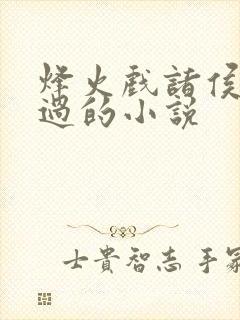 烽火戲諸侯
過的小說
士貴智志手冢